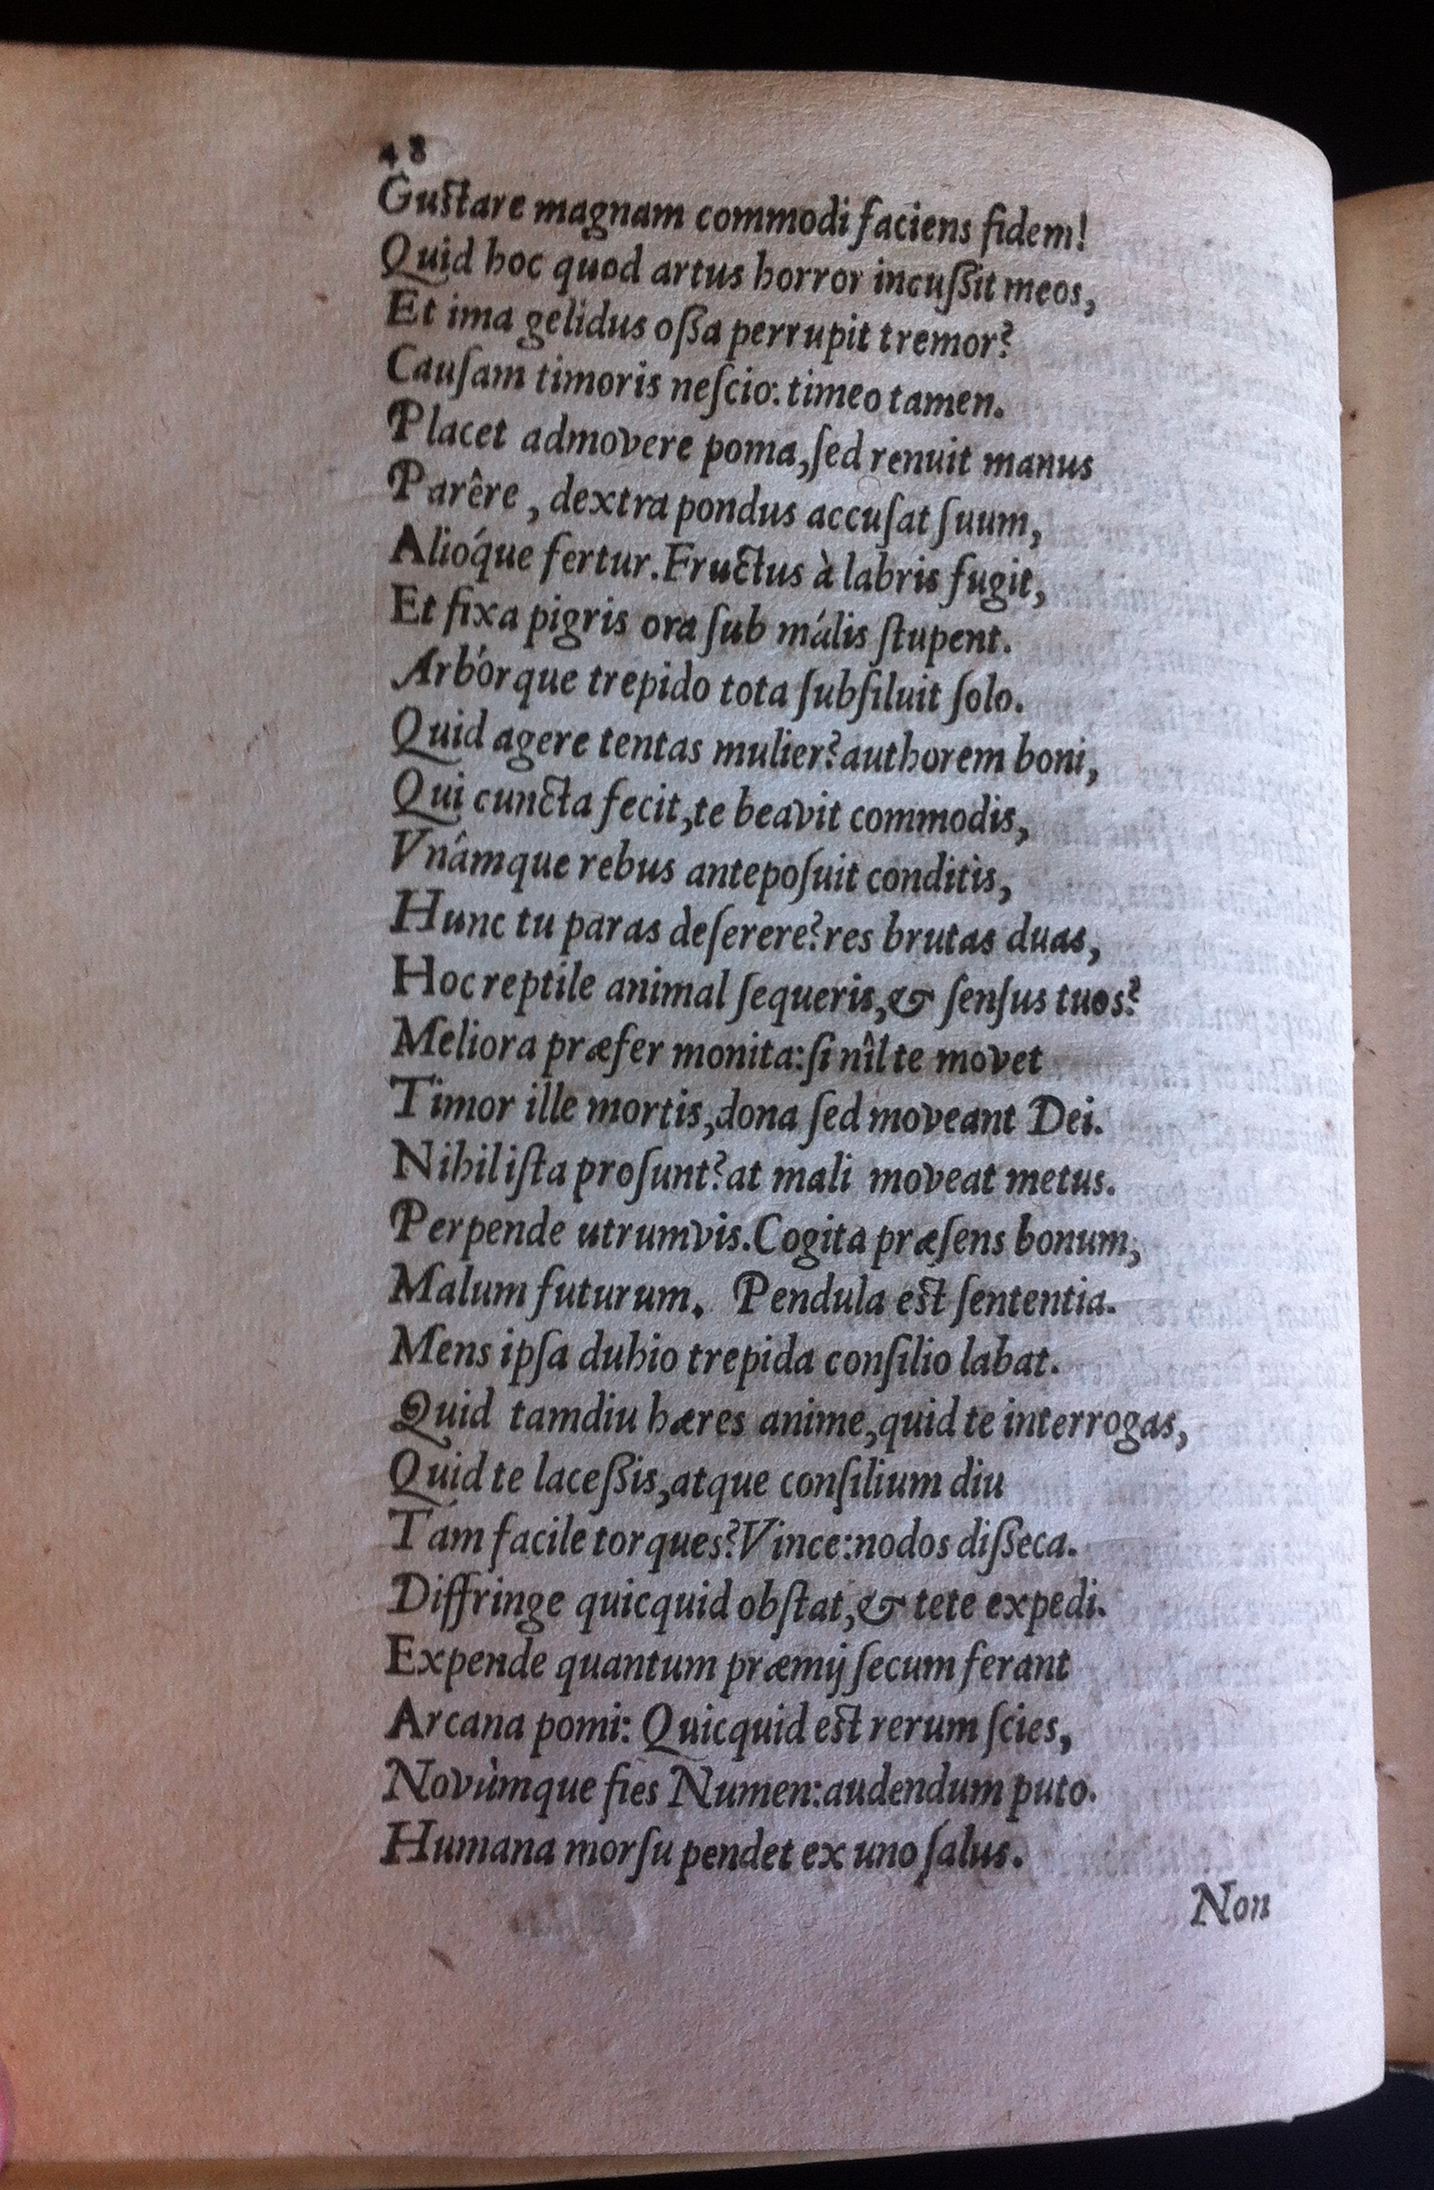 48
Gustare magnam commodi faciens fidem!
Quid hoc quod artus horror incuſsit meos,
Et ima gelidus oſsa perrupit tremor?
Cauſam timoris neſcio: timeo tamen.
Placet admovere poma, ſed renuit manus
Parêre, dextra pondus accuſat ſuum,
Alióque fertur. Fructus à labris fugit,
Et fixa pigris ora ſub mális ſtupent.
Arbórque trepido tota ſubſiluit ſolo.
Quid agere tentas mulier? authorem boni,
Qui cuncta fecit, te beavit commodis,
Vnámque rebus antepoſuit conditis,
Hunc tu paras deſerere? res brutas duas,
Hoc reptile animal ſequeris, & ſenſus tuos?
Meliora præfer monita: ſi nîl te movet
Timor ille mortis, dona ſed moveant Dei.
Nihil iſta proſunt? at mali moveat metus.
Perpende utrumvis. Cogita præſens bonum,
Malum futurum. Pendula est ſententia.
Mens ipſa duhio trepida conſilio labat.
Quid tamdiu hæres anime, quid te interrogas,
Quid te laceſsis, atque conſilium diu
Tám facile torques? Vince: nodos diſseca.
Diffringe quicquid obſtat, & tete expedi.
Expende quantum præmij ſecum ferant
Arcana pomi: Quicquid est rerum ſcies,
Novùmque fies Numen: audendum puto.
Humana morſu pendet ex uno ſalus.
Non